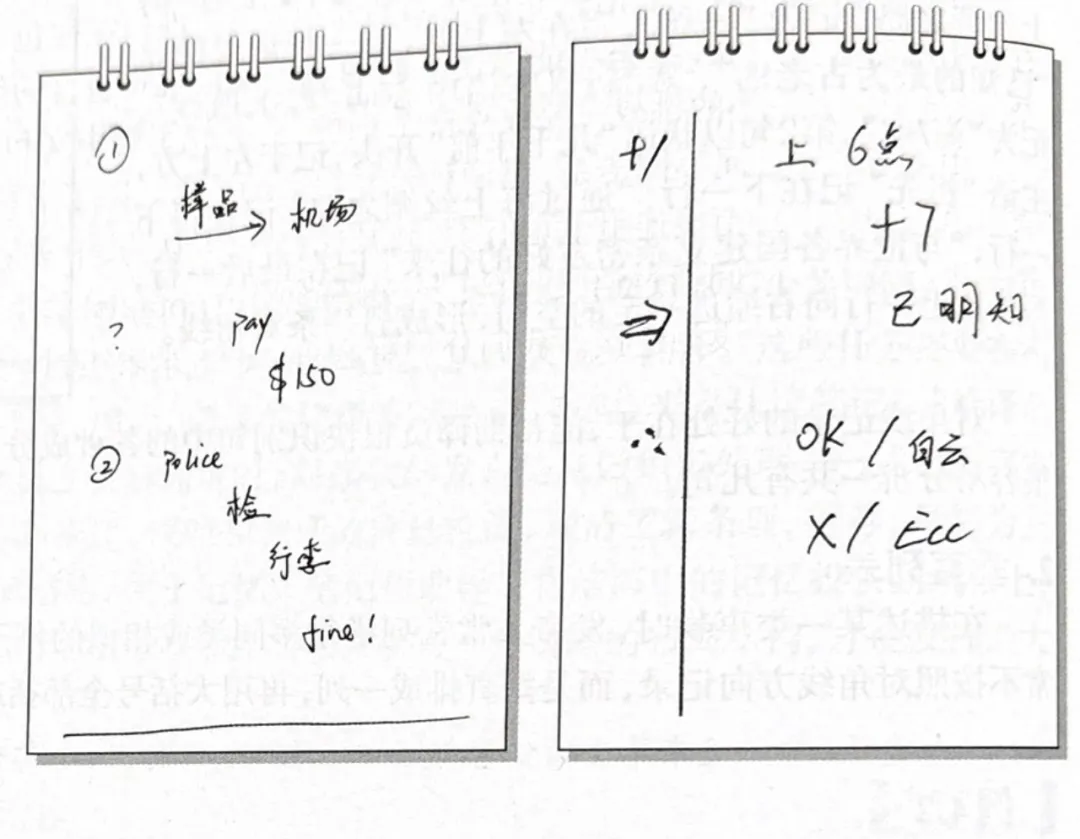 ①
样品
→ 机场
? pay
$150
② police
检
行李
fine!
+/ 上 6点
+7
⇒ 已明知
∴ OK / 白云
X / Ecc